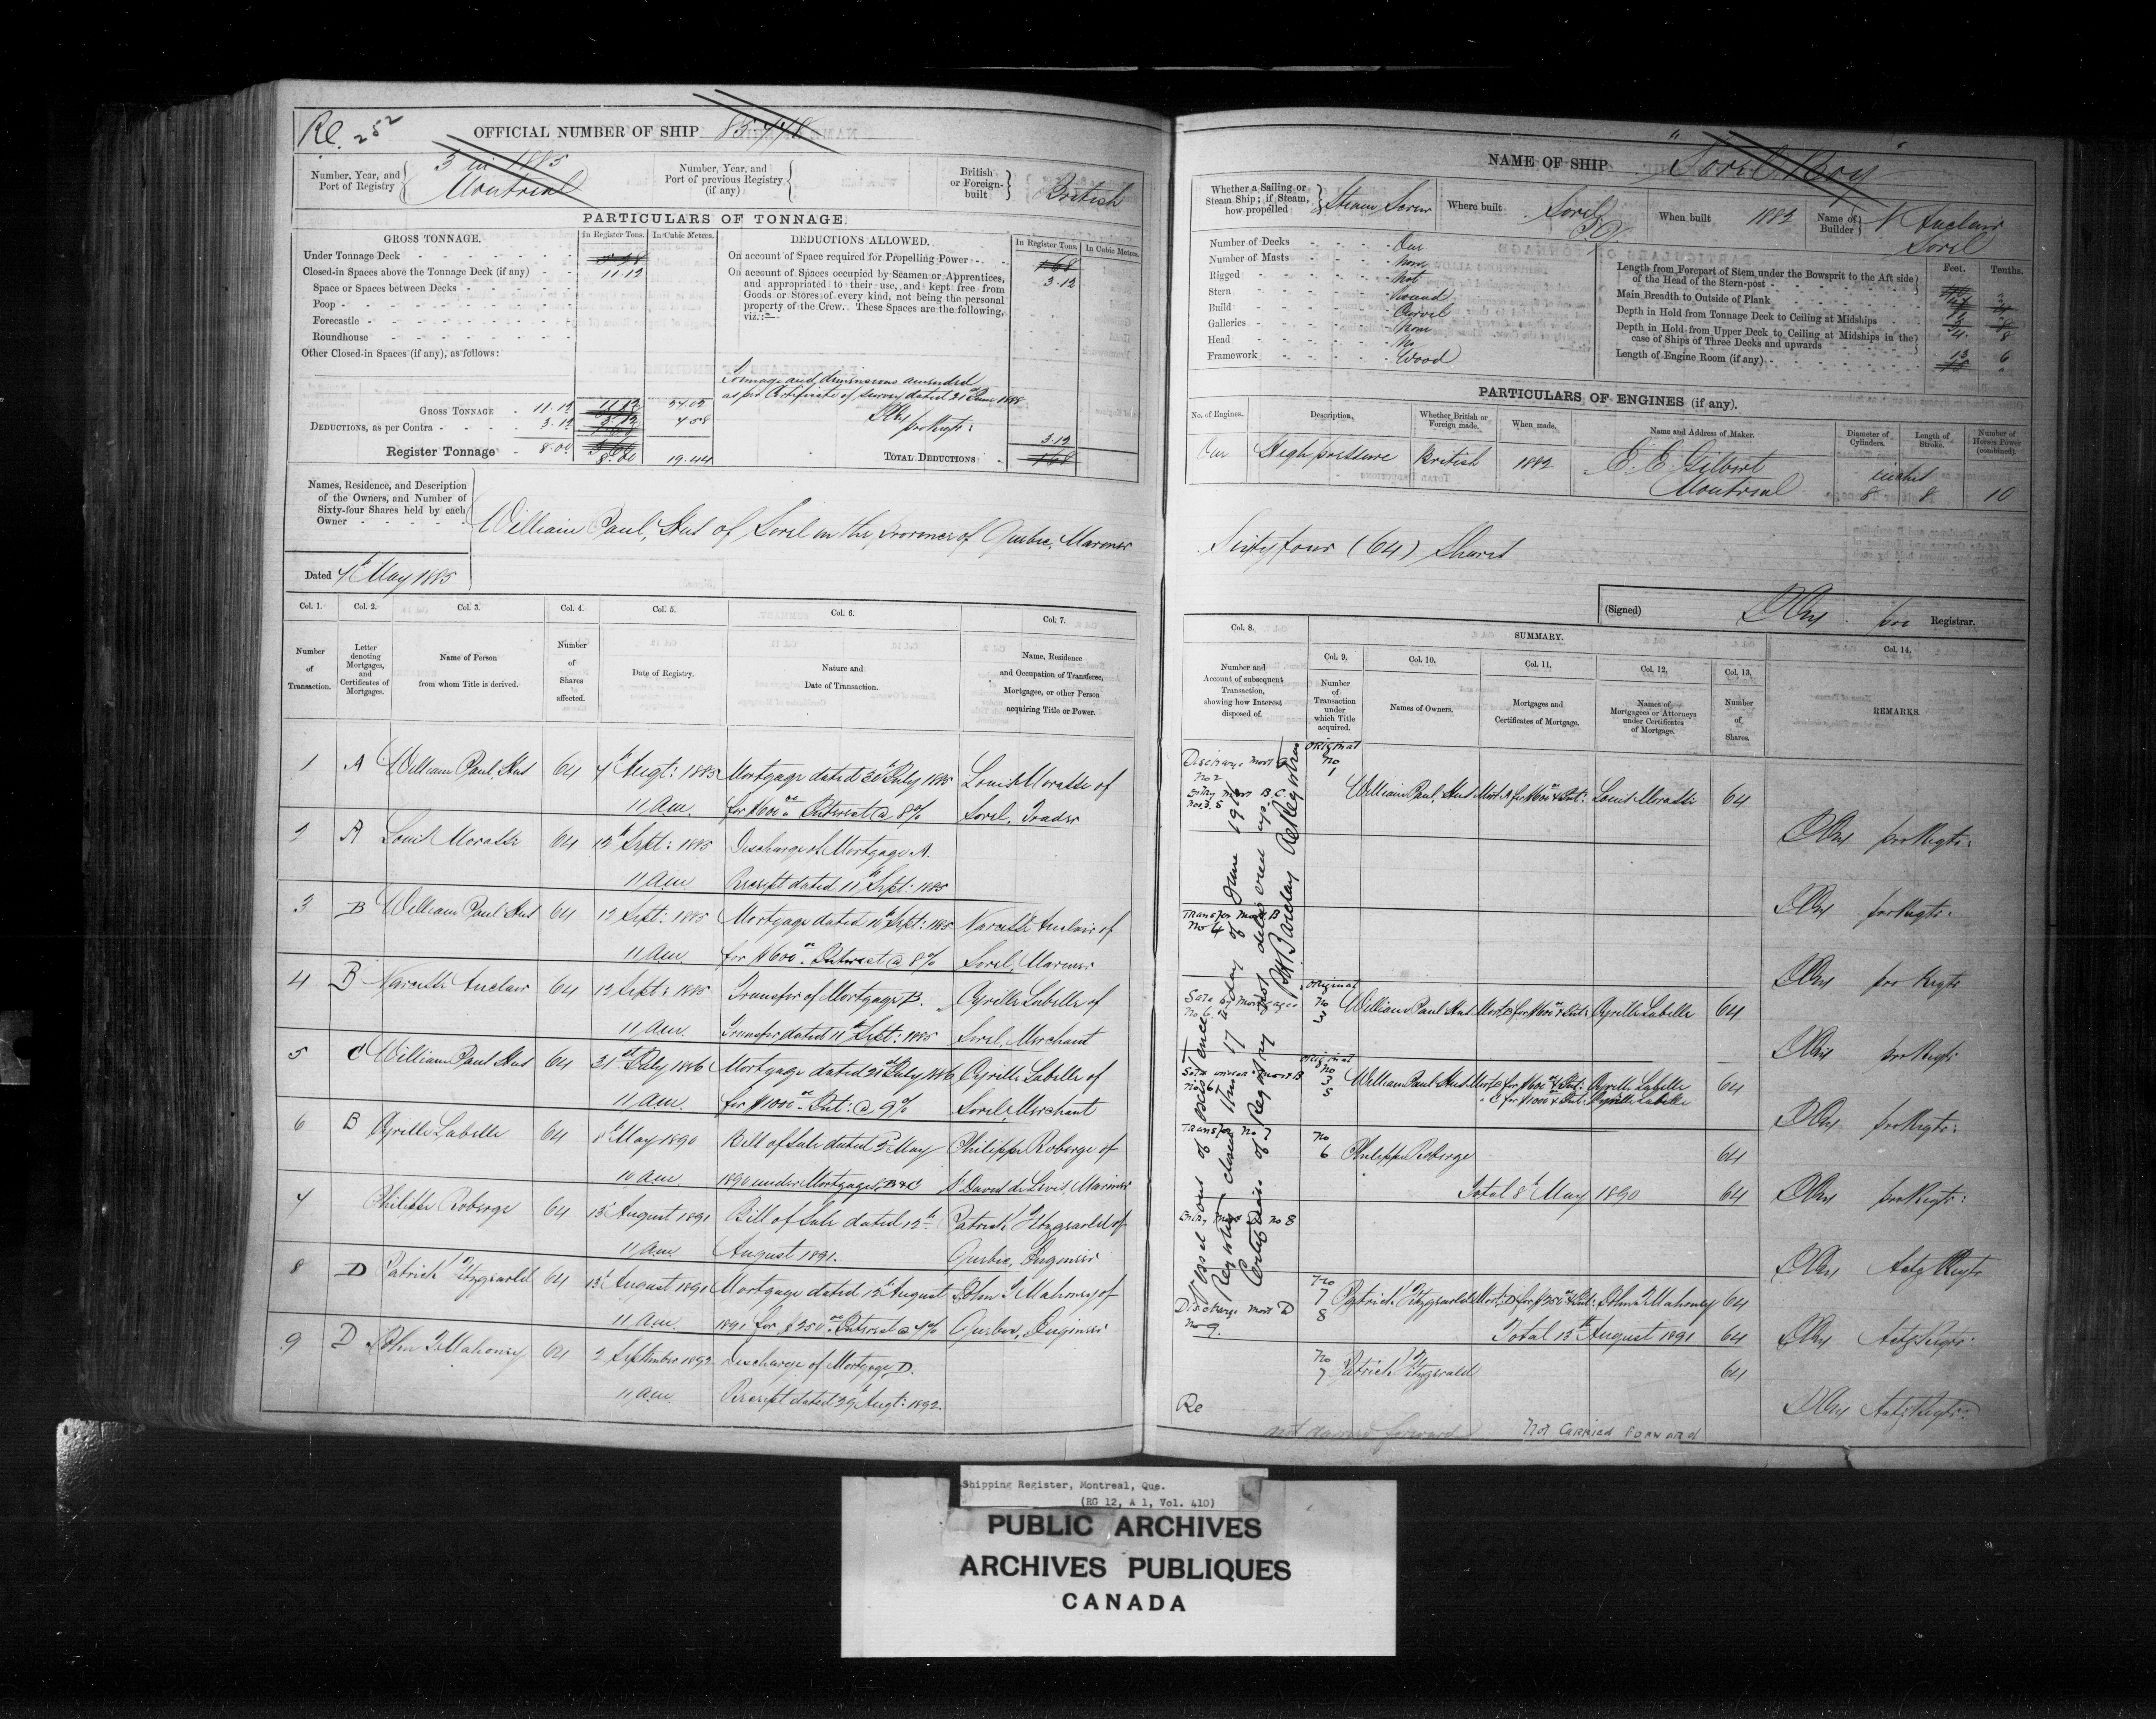 Re. 252
OFFICIAL NUMBER OF SHIP
Number, Year, and
Port of Registry
3 in 1885
Montreal
Number, Year, and
Port of previous Registry
(if any)
British
or Foreign-
built
British
PARTICULARS OF TONNAGE.
GROSS TONNAGE.
In Register Tons.
In Cubic Metres.
Under Tonnage Deck
Closed-in Spaces above the Tonnage Deck (if any)
11.12
Space or Spaces between Decks
Poop
Forecastle
Roundhouse
Other Closed-in Spaces (if any), as follows:
GROSS TONNAGE 11.12
DEDUCTIONS, as per Contra 3.12
Register Tonnage 8.00 8.00 19.44
DEDUCTIONS ALLOWED.
In Register Tons.
In Cubic Metres.
On account of Space required for Propelling Power
1.68
On account of Spaces occupied by Seamen or Apprentices,
3.12
and appropriated to their use, and kept free from
Goods or Stores of every kind, not being the personal
property of the Crew. These Spaces are the following,
viz.:—
Tonnage and dimensions amended
as per Certificate of survey dated 21st June 1888
pro Regtr:
3.12
TOTAL DEDUCTIONS 1.68
Names, Residence, and Description
of the Owners, and Number of
Sixty-four Shares held by each
Owner
William Paul Hus of Sorel in the province of Quebec, Mariner
Dated 4th May 1885
Col. 1.
Number
of
Transaction.
Col. 2.
Letter
denoting
Mortgages,
and
Certificates of
Mortgages.
Col. 3.
Name of Person
from whom Title is derived.
Col. 4.
Number
of
Shares
affected.
Col. 5.
Date of Registry.
Col. 6.
Nature and
Date of Transaction.
Col. 7.
Name, Residence
and Occupation of Transferee,
Mortgagee, or other Person
acquiring Title or Power.
1 A William Paul Hus 64 4th Augt: 1885 Mortgage dated 30th July 1885 Louis Morasse of
11 A.m. for $600 Interest @ 8% Sorel, Trader
2 A Louis Morasse 64 12th Sept: 1885 Discharge of Mortgage A.
11 A.m Receipt dated 11th Sept: 1885
3 B William Paul Hus 64 12 Sept: 1885 Mortgage dated Sept: 1885 Narcisse Auclair of
11 A.m. for $600 Interest @ 8% Sorel, Mariner
4 B Narcisse Auclair 64 12 Sept: 1885 Transfer of Mortgage B. Cyrille Labelle of
11 A.m. Transfer dated 11th Sept: 1885 Sorel, Merchant
5 C William Paul Hus 64 31st July 1886 Mortgage dated July 1886 Cyrille Labelle of
11 A.m. for $1000 Int: @ 9% Sorel, Merchant
6 B Cyrille Labelle 64 8th May 1890 Bill of Sale dated 2 May Philippe Roberge of
10 am 1890 under Mortgages B & C St David de Levis, Mariner
7 Philippe Roberge 64 13 August 1891 Bill of Sale dated 12th Patrick Fitzgerald of
11 A.m. August 1891. Quebec, Engineer
8 D Patrick Fitzgerald 64 13 August 1891 Mortgage dated 12th August John T Mahoney of
11 A.m. 1891 for $250 Interest @ 7% Quebec, Engineer
9 D John T Mahoney 64 2 September 1892 Discharge of Mortgage D.
11 A.m Receipt dated 29 Augt: 1892.
NAME OF SHIP "Sorel Boy"
Whether a Sailing or
Steam Ship; if Steam,
how propelled
Steam Screw
Where built
Sorel
P.Q.
When built 1882
Name of
Builder
N Auclair
Sorel
Number of Decks One
Number of Masts None
Rigged Not
Stern Round
Build Carvel
Galleries None
Head No
Framework Wood
Feet.
Tenths.
Length from Forepart of Stem under the Bowsprit to the Aft side
of the Head of the Stern-post
Main Breadth to Outside of Plank
Depth in Hold from Tonnage Deck to Ceiling at Midships
Depth in Hold from Upper Deck to Ceiling at Midships in the
case of Ships of Three Decks and upwards
Length of Engine Room (if any)
PARTICULARS OF ENGINES (if any).
No. of Engines.
Description.
Whether British or
Foreign made.
When made.
Name and Address of Maker.
Diameter of
Cylinders.
Length of
Stroke.
Number of
Horses Power
(combined).
One High pressure British 1882 E. E. Gilbert
Montreal
inches
8 8 10
Sixty four (64) Shares
(Signed)
pro Registrar.
SUMMARY.
Col. 8.
Number and
Account of subsequent
Transaction,
showing how Interest
disposed of.
Col. 9.
Number
of
Transaction
under
which Title
acquired.
Col. 10.
Names of Owners.
Col. 11.
Mortgages and
Certificates of Mortgage.
Col. 12.
Names of
Mortgagees or Attorneys
under Certificates
of Mortgage.
Col. 13.
Number
of
Shares.
Col. 14.
REMARKS.
Discharge Mort A
No 2
Entry Mort B.C
Nos 3.5
Original
No
1
William Paul Hus Mort A for $600 & Int: Louis Morasse 64
pro Regtr:
pro Regtr:
Transfer Mort B
No 4
pro Regtr
Sale by Mortgagee
No 6
Original
No
3
William Paul Hus Mort B for $600 & Int: Cyrille Labelle 64
pro Regtr
Original
No
3
5
William Paul Hus Mort B for $600 & Int: Cyrille Labelle 64
" C for $1000 & Int: Cyrille Labelle
pro Regtr:
Transfer No 7
No
6
Philippe Roberge 64
Total 8th May 1890 64
pro Regtr:
Entry Mort D No 8
Actg Regtr
No
7
8
Patrick Fitzgerald Mort: D for $250 & Int: John T Mahoney 64
Discharge Mort D
No 9.
Total 13th August 1891 64
Actg Regtr:
No
7
Patrick Fitzgerald 64
Actg Regtr:
Vessel out of existence
Registry closed this 17th day of June 191
Certificate of Registry not delivered up.
Barclay Registrar
Re
not carried forward
Not Carried Forward
Shipping Register, Montreal, Que.
(RG 12, A 1, Vol. 410)
PUBLIC ARCHIVES
ARCHIVES PUBLIQUES
CANADA